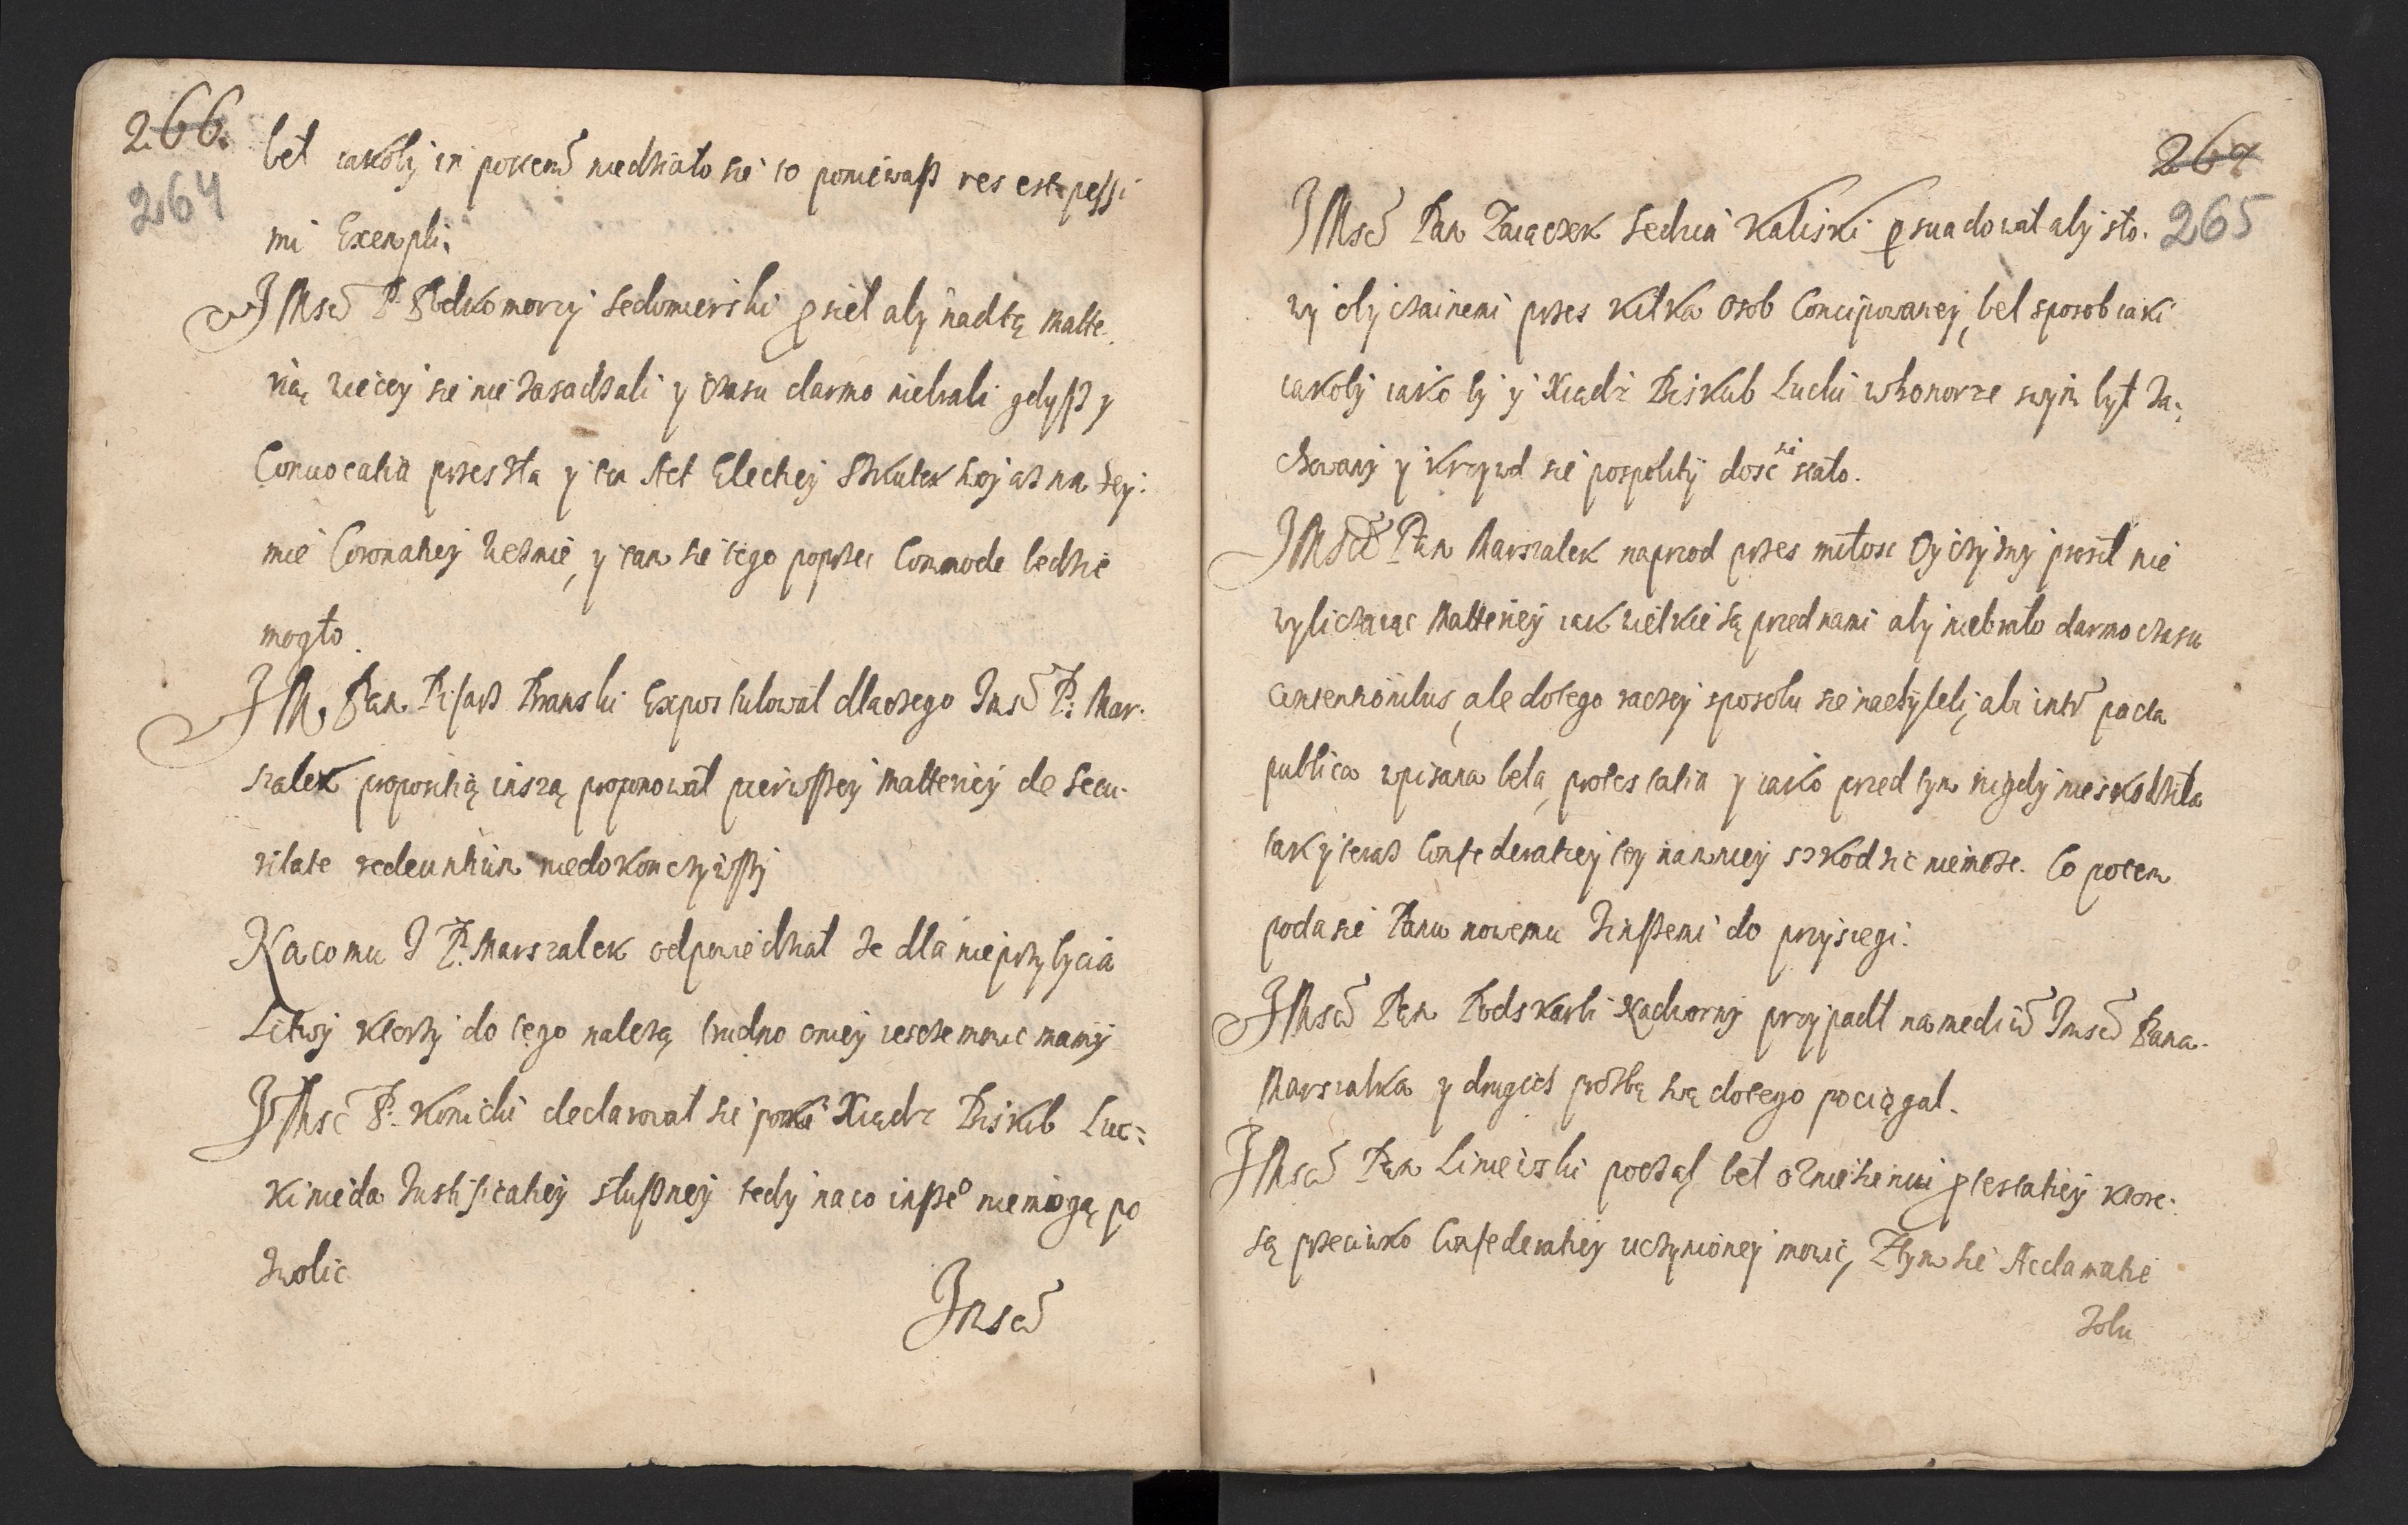 266.
264
beł iakoby in potem niedziało sie to poniewaß res est pessi
mi Exempli.
JMsć P. Podkomorzy Sedomierski psieł aby nad tą Matte.
rią wiecey sie nie zasadzali y czasu darmo niebrali gdyß y
Conuocatia przeszła y ten Act Electiey Skutek swoy aż na Sey:
mie Coronatiey weźmie, y tam sie tego poprzec Commode bedzie
mogło.
JM. Pan Pisarz Branski Expostulował dlaczego Jmsć P: Mar.
szalek propositią inszą proponował pierwßey Matteriey de Secu.
ritate redeuntium niedokonczywßy
Na co mu J P. Marszalek odpowiedział że dla nieprzybycia
Litwy ktorzy do tego należą trudno oniey ieszcze mowic mamy
JMsć P. Konicki declarował sie poki Xiądz Biskub Luc:
ki nieda Justificatiey słußney tedy na co inße° niemogą po
zwolic
Jmsć
267
265
JMsć Pan Zaiączek Sedzia Kaliski psuadował aby sło.
wy obyczainemi przes kilka osob Concipowaney, beł sposob iaki
iakoby iako by y Xiądz Biskub Lucki w honorze swym był za:
chowany y krzywd sie pospolity dosc sie stało.
JMsć Pan Marszalek naprzod przes miłosc Oyczyzny prosił nie
wyliczaiąc Matteriey iak wielkie są przed nami aby niebrało darmo czasu
contentionibus, ale do tego raczey sposobu sie nachyleli, abi intr pacta
publica wpisana beła, protestatia y iako przed tym nigdy nieskodziła
tak y teraz Confederatiey tey namniey szkodzic niemoże. Co potem
poda sie Panu nowemu z inßemi do przysiegi.
JMsć Pan Podskarbi Nadworny przypadł na mediū Jmsć Pana.
Marszalka y drugich prozbą swą do tego pociągał.
JMsć Pan Liniewski począł beł o zniesieniu ptestatiey ktore.
są przeciwko Confederatiey uczynioney mowic, Z tym sie Acclamatie
Zobu